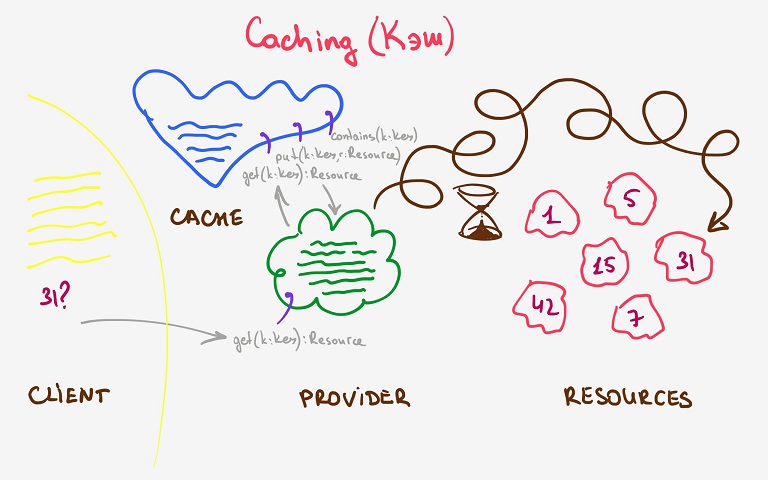 Caching (Кэш)
contains(k:Key)
put(k:Key, r:Resource)
get(k:Key):Resource
CACHE
1
5
15
31
42
7
31?
get(k:Key):Resource
CLIENT
PROVIDER
RESOURCES